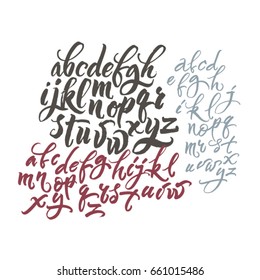 abcdefgh
ijklmn
nopqr
stuvwxyz
a b c
d e f g
h i j
k l m
nopq
rst
uvw
xyz
abcdefghijkl
mnopqrstuvw
xyz
shutterstock
661015486